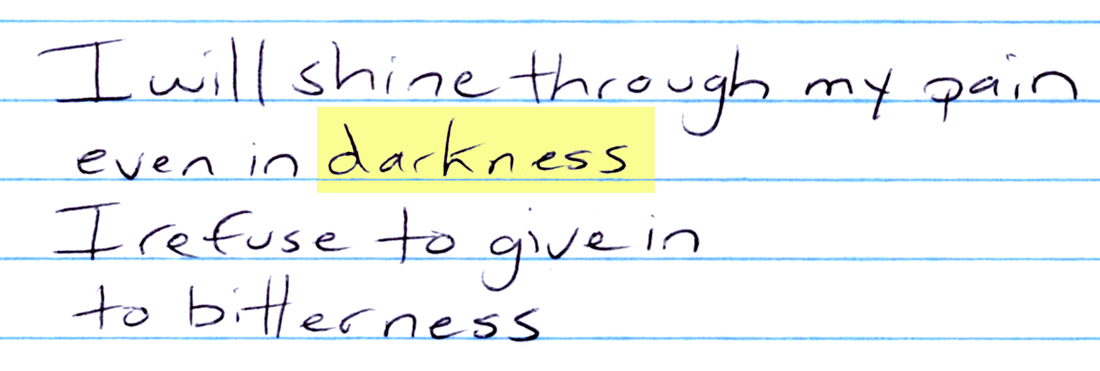 I will shine through my pain
even in darkness
I refuse to give in
to bitterness